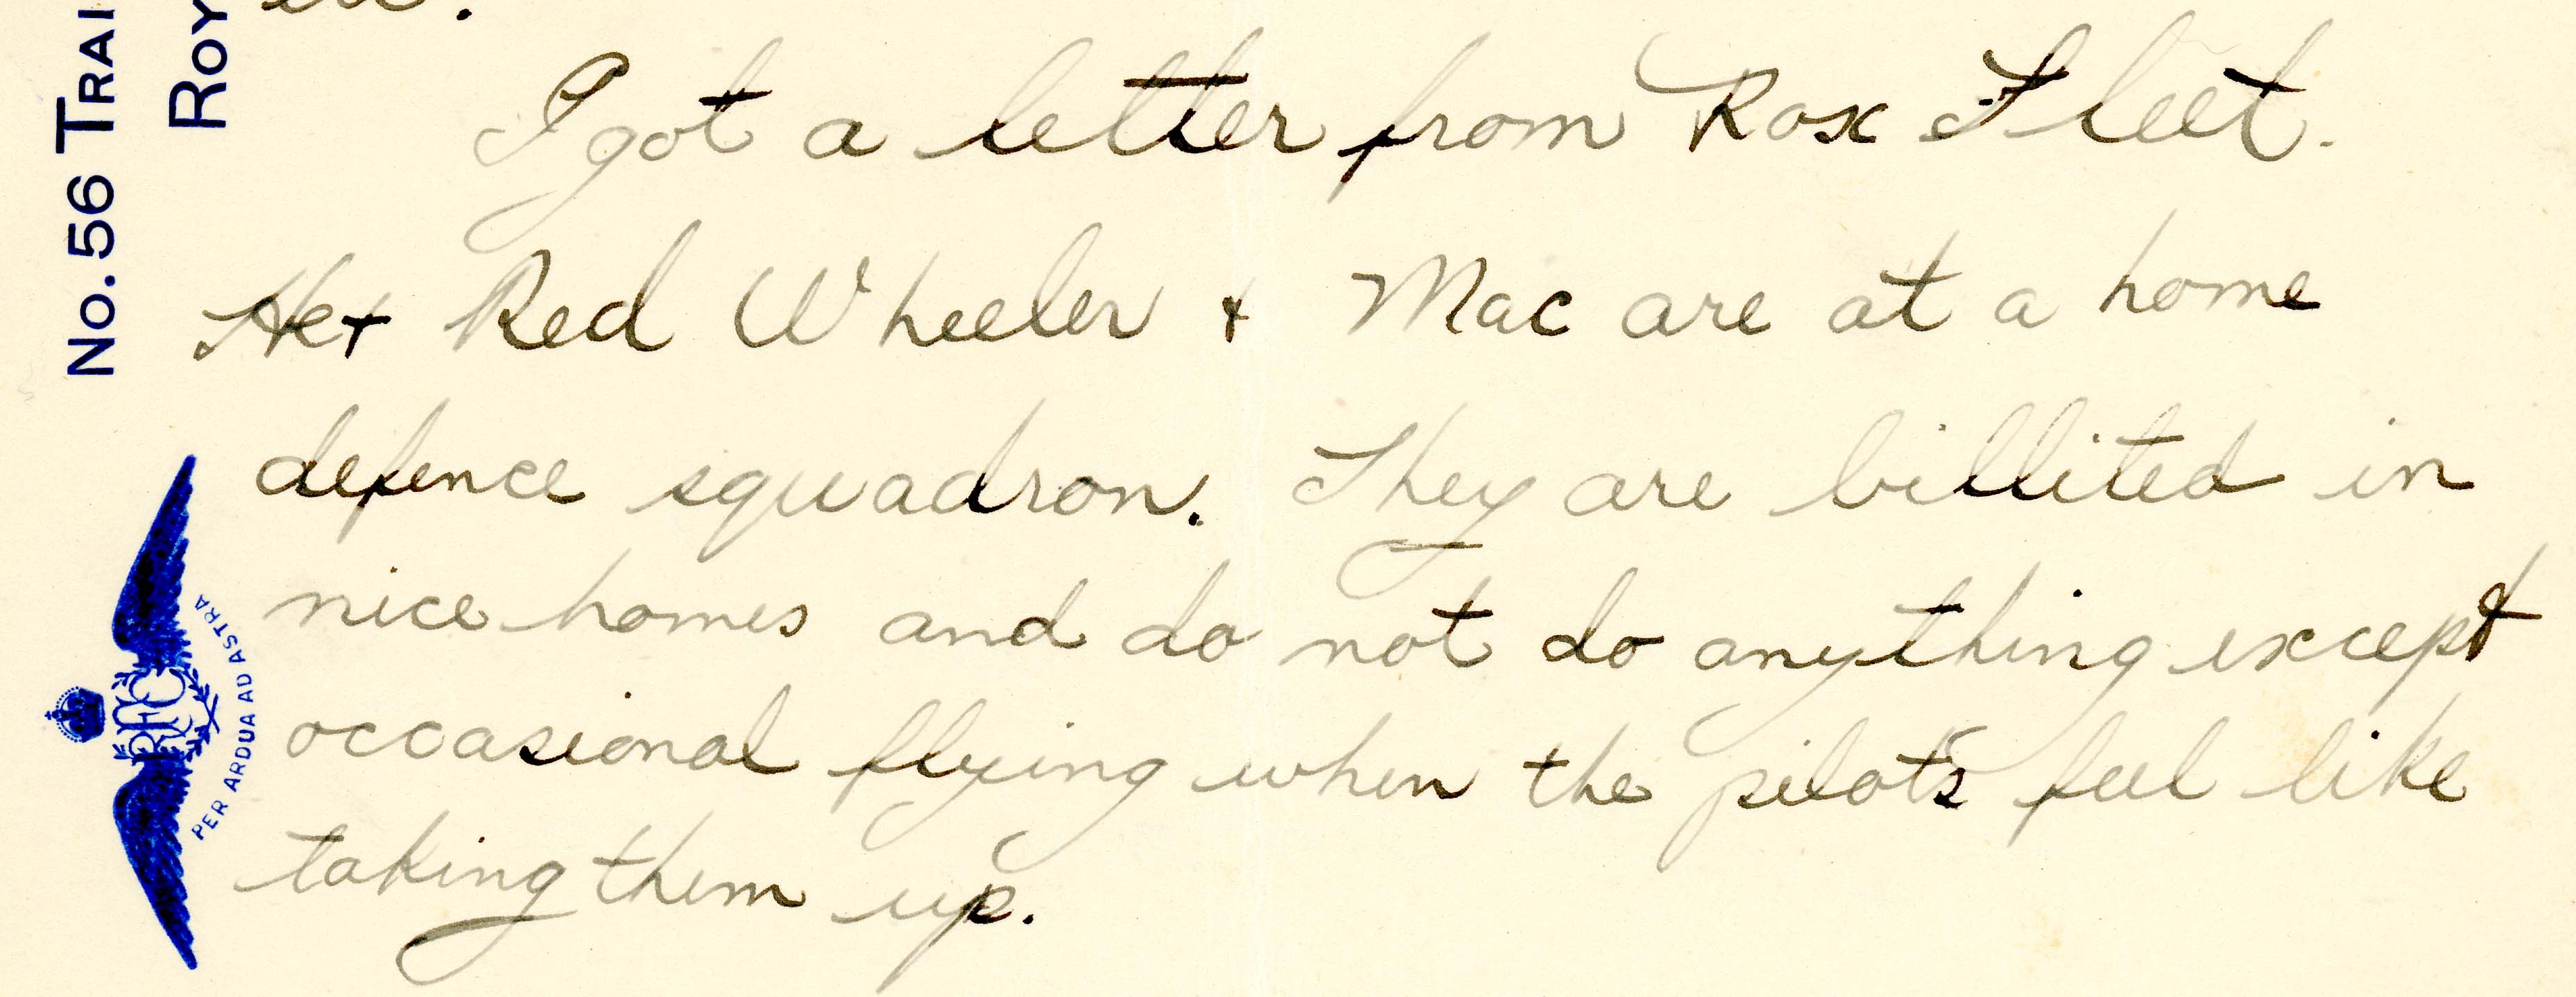 No. 56 TRAI
ROY
I got a letter from Rox Fleet.
He + Red Wheeler + Mac are at a home
defence squadron. They are billited in
nice homes and do not do anything except
occasional flying when the pilots feel like
taking them up.
RFC
PER ARDUA AD ASTRA